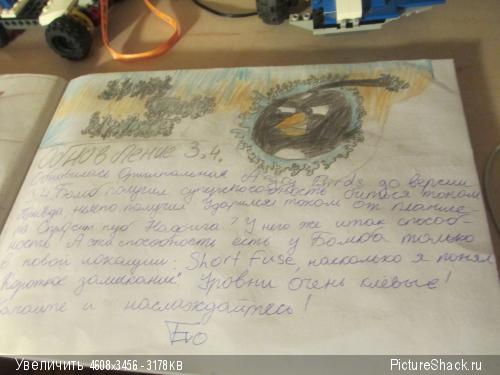 ОБНОВЛЕНИЕ 3.4.
Обновилась Оригинальная Angry Birds до версии
3.4. Бомб получил суперспособность биться током
Правда, нелепо получил Ударился током от планше-
та Спросил про У него же итак способ-
ность! А эта способность есть у Бомба только
в новой локации: Short Fuse, насколько я понял
"Короткое замыкание". Уровни очень клёвые!
и наслаждайтесь!
Увеличить 4608x3456 - 3178KB
PictureShack.ru